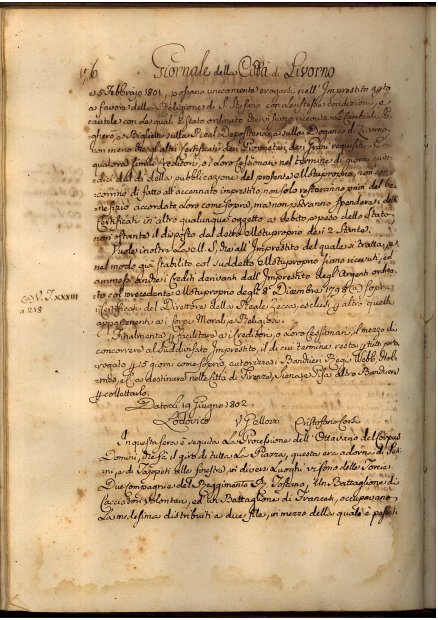 176
Giornale della Città di Livorno
e 5 Febbrajo 1801, possano unicamente erogarsi nell'Imprestito aperto
a favore della Religione di S. Stefano con le istesse condizioni, e
cautele con le quali È stato ordinato che siano ricevute le Cambiali, Pa-
gherò, e Biglietti sulla Real Depositeria, e sulla Dogana di Livorno
non meno che gli altri Certificati dei Proprietarj dei Grani requisiti. E
qualora simili Creditori, o i loro Cessionarj nel termine di giorni quin-
dici dal dì della pubblicazione del presente Mottuproprio, non con-
corrino di fatto all'accennato imprestito, non solo resteranno privi del be-
nefizio accordato loro come sopra, ma non potranno spendere i detti
Certificati in altro qualunque oggetto a debito, e peso dello Stato
non ostante il disposto dal detto Mottuproprio dei 2 Stante.
Vuole inoltre la M. S. che all'Imprestito del quale si tratta, e
nel modo già stabilito col suddetto Mottuproprio siano ricevuti, ed
ammessi anche i Crediti derivanti dall'Imprestito degl'Argenti ordina-
to col precedente Mottuproprio degli 8 Dicembre 1798 (a) sopra
Certificati del Direttore della Reale Zecca, esclusi gli altri quelli
appartenenti ai Corpi Morali, e Religiosi.
Co: W. T. XXXIII
a 218
Finalmente p facilitare ai Creditori, o loro Cessionarj il mezzo di
concorrere al suddivisato Imprestito, il di cui termine resta stato pro-
rogato a 15 giorni come sopra, autorizza i Banchieri Regj Webb, Hol-
mes, e Co a destinare nelle Città di Firenze, Siena, e Pisa altro Banchiere
p collettarlo.
Dato li 19 Giugno 1802.
Lodovico V Gallozzi Cristofano Corsi
In questa sera è seguita la Processione dell'Ottavario del Corpus
Domini, che fà il giro di tutta la Piazza, questa era adorna di Fes-
tini, e di Tappeti alle finestre, in diversi Luochi vi sono delle Torcie
Due compagnie del Reggimento R. Toscano, Un Battaglione di
Cacciadori Volontarj, ed un Battaglione di Francesi, occupavano
la medesima distribuiti a due file, in mezzo della quale è passata